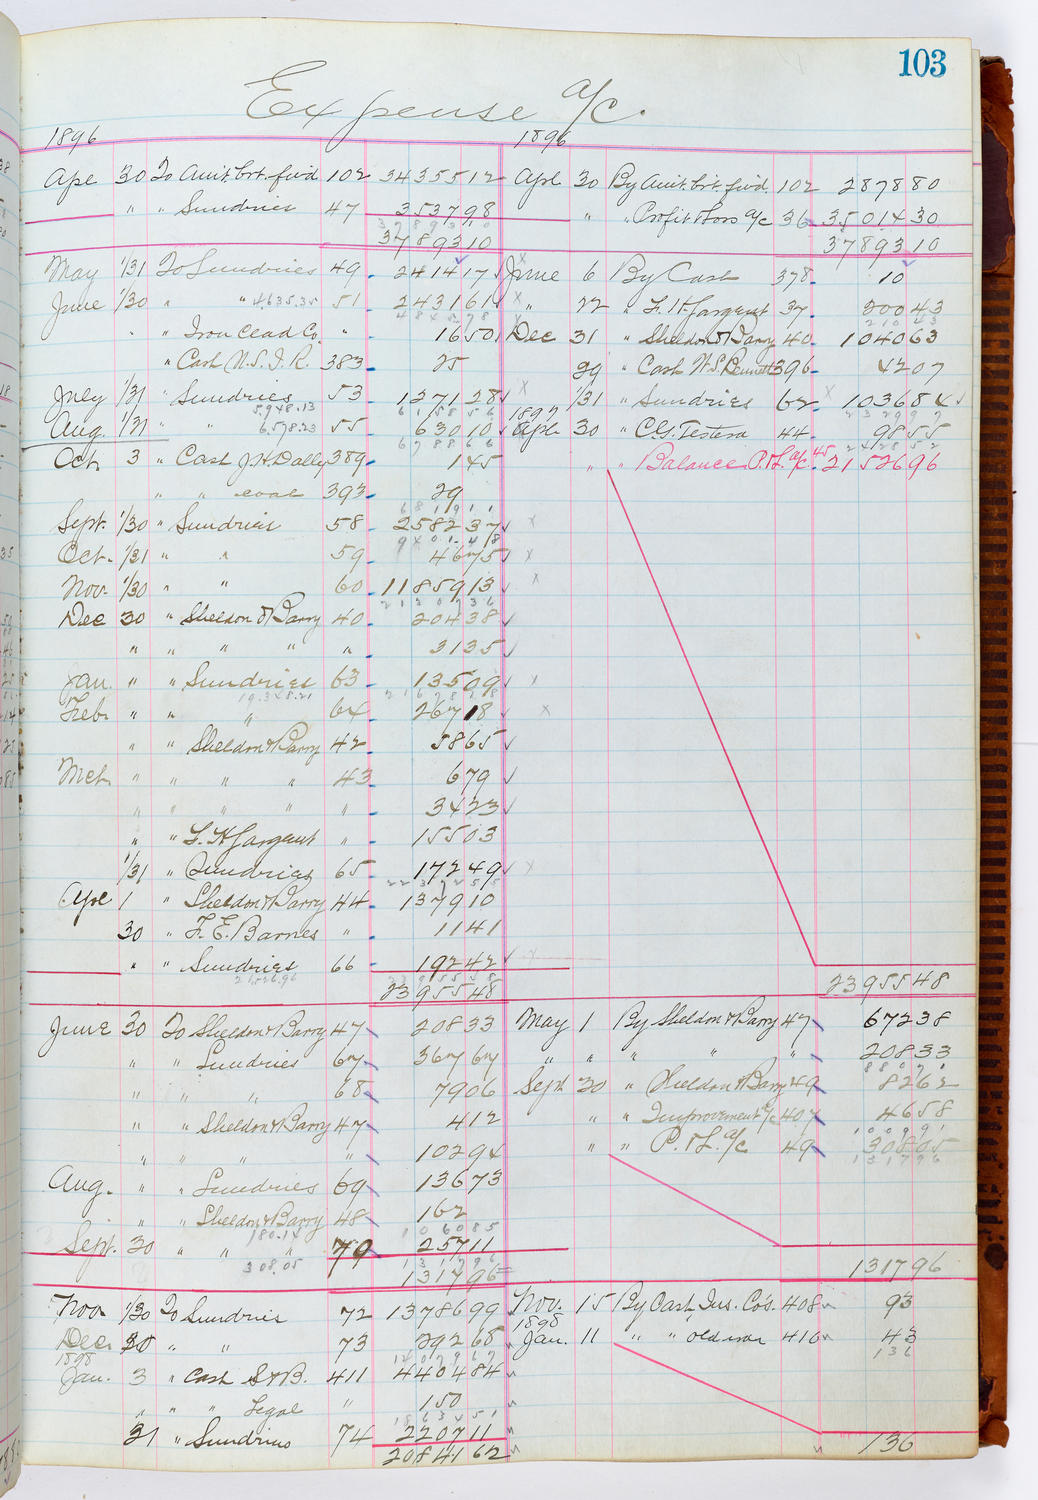 103
Expense a/c.
1896 1896
Ape 30 To Amt. brt. fwd 102 3435512 Apl 30 By Amt. brt. fwd. 102 287880
" " Sundries 47 353798 " " Profit & Loss a/c 36 3501430
3789310 3789310
May 1/31 To Sundries 49 241417 June 6 By Cash 378 10
June 1/30 " " 4635.35 51 243161 " 22 " F. H. Sargent 37 20043
" " Iron Clad Co. " 16501 Dec 31 " Sheldon & Barry 40 104063
" Cash N.S.I.R. 383 25 29 " Cash W.S. Bennett 396 4207
July 1/31 " Sundries 53 127128 1/31 " Sundries 62 103684
5948.13 1897
Aug. 1/31 " " 6578.23 55 63010 Apl. 30 " 44 9855
Oct. 3 " Cash J.H. Dally 389 145 " " Balance P.&L. a/c 45 2152696
" " coal 393 29
Sept. 1/30 " Sundries 58 258237
Oct. 1/31 " " 59 4675
Nov. 1/30 " " 60 1185913
Dec 30 " Sheldon & Barry 40 20438
" " " " " 3135
Jan. " " Sundries 63 13509
19348.21
Feb. " " " 64 26718
" " Sheldon & Barry 42 5865
Mch " " " " 43 679
" " " " " 3423
" " F. H. Sargent " 15503
1/31 " Sundries 65 17249
Apl 1 " Sheldon & Barry 44 137910
30 " F. E. Barnes " 1141
" " Sundries 66 19242
21526.96
2395548 2395548
June 30 To Sheldon & Barry 47 20833 May 1 By Sheldon & Barry 47 67238
" " Sundries 67 36767 " " " " " 20833
" " " 68 7906 Sept 30 " Sheldon & Barry 49 8262
" " Sheldon & Barry 47 412 " " Improvement a/c 407 4658
" " " " 10294 " " P. & L. a/c 49 30805
Aug. " " Sundries 69 13673
" " Sheldon & Barry 48 162
180.14
Sept. 30 " " " 79 25711
308.05
131796 131796
Nov. 1/30 To Sundries 72 1378699 Nov. 15 By Cash, Ins. Co's. 408 93
1898
Dec. 30 " " 73 29268 Jan. 11 " " old iron 416 43
1898 136
Jan. 3 " Cash S & B. 411 440484
" " " Legal " 150
31 " Sundries 74 220711
2084162 136